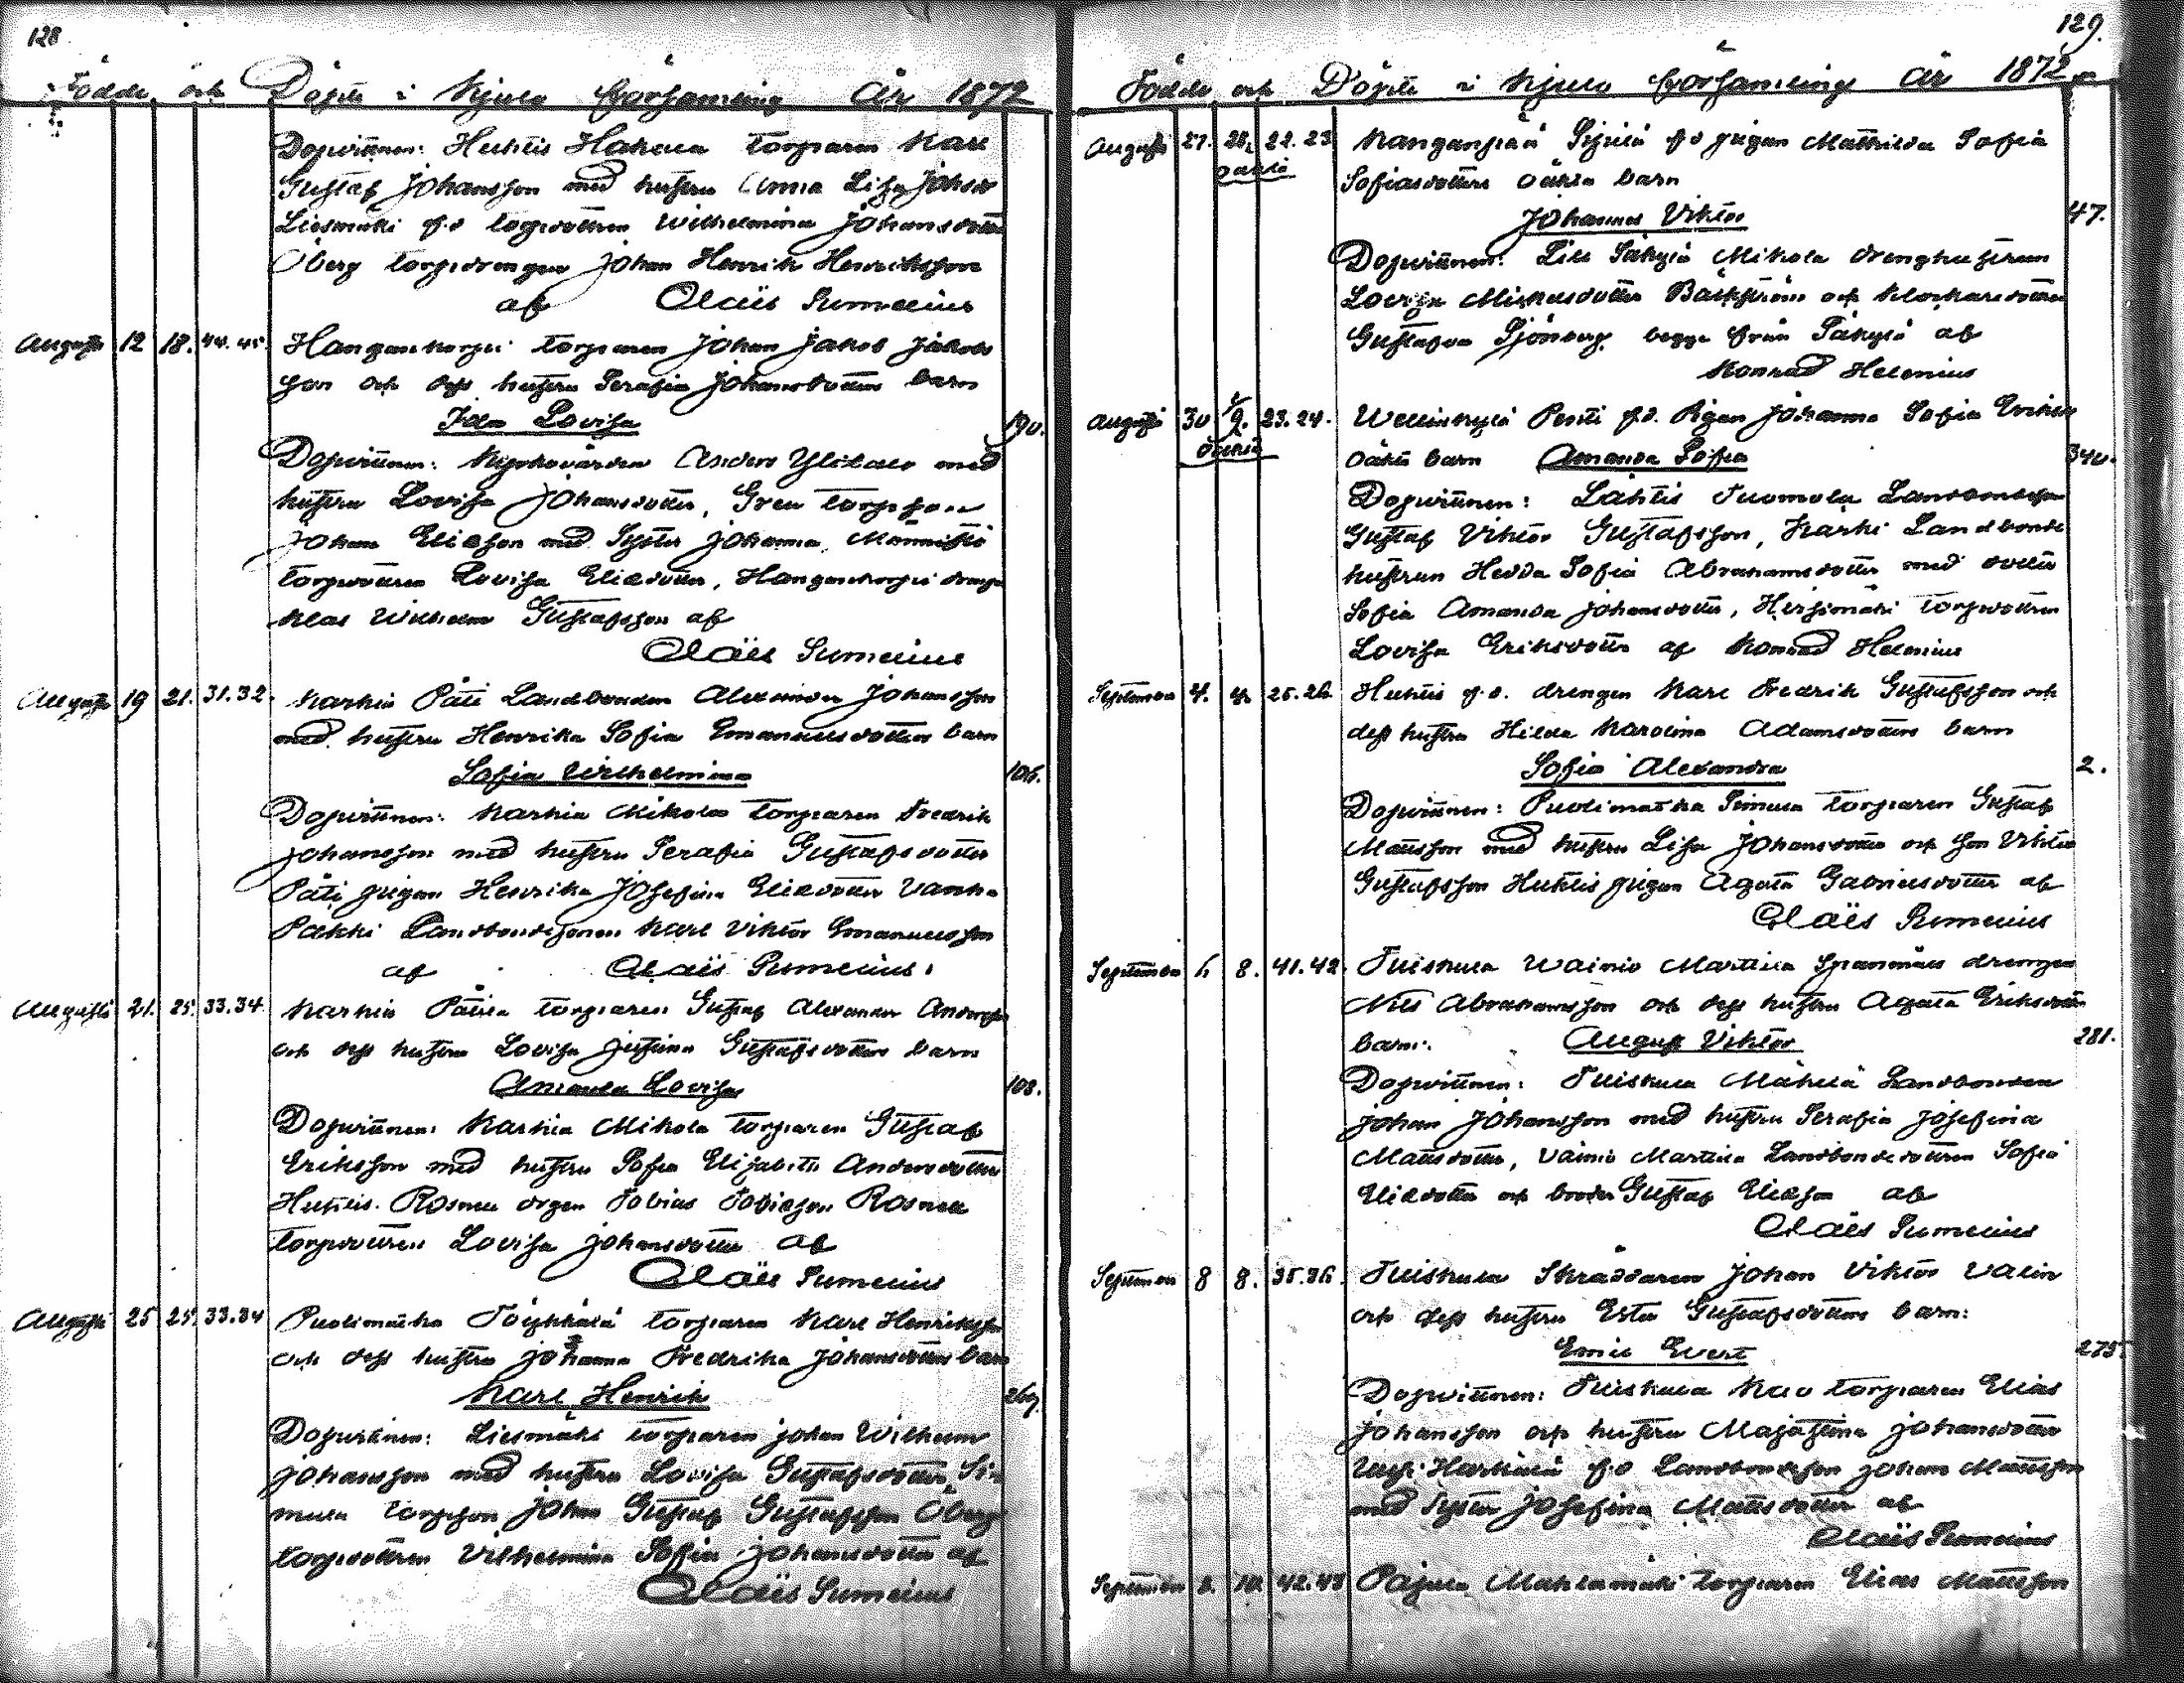 128
Födde och Döpte i Kjulo församling År 1872
Dopvittnen: Huhtis Hakena torparen Karl
Gustaf Johansson med hustru Anna Lisa Johsdr
Liesmäki f.d torpdottren Wilhelmina Johansdotter
Öberg torpdrengen Johan Henrik Henriksson
af Claës Sumelius
Augusti 12 18. 44.45. Hangankorpi torparen Johan Jakob Jakobs
son och dess hustru Serafia Johansdotters barn
Ida Lovisa 190.
Dopvittnen: Kyrkovärden Anders Ylitalo med
hustru Lovisa Johansdotter, Gren torpson
Johan Eliasson med Syster Johanna, Männistö
torpdottren Lovisa Eliasdotter, Hangankorpi dreng
Klas Wilhelm Gustafsson af
Claës Sumelius
Augusti 19 21. 31.32. Karhia Päti Landbonden Alexander Johansson
med hustru Henrika Sofia Emanuelsdotters barn
Sofia Wilhelmina 106.
Dopvittnen: Karhia Mikola torparen Fredrik
Johansson med hustru Serafia Gustafsdotter
Päti pigan Henrika Josefina Eliasdotter Vanha
Pakki Landbondsonen Karl Viktor Emanuelsson
af Claës Sumelius.
Augusti 21. 25. 33.34 Karhia Pätilä torparen Gustaf Alexander Andersson
och dess hustru Lovisa Justina Gustafsdotters barn
Amanda Lovisa 108.
Dopvittnen: Karhia Mikola torparen Gustaf
Eriksson med hustru Sofia Elisabeth Andersdotter
Huhtis Rosnell drgen Tobias Tobiasson Rosnell
torpdottren Lovisa Johansdotter af
Claës Sumelius
Augusti 25 25. 33.34 Puolimatka Töykkälä torparen Karl Henriksson
och dess hustru Johanna Fredrika Johansdotters barn
Karl Henrik 269.
Dopvittnen: Liesmäki torparen Johan Wilhelm
Johansson med hustru Lovisa Gustafsdotter, Si-
mula torpson Johan Gustaf Gustafsson Öberg
torpdottren Vilhelmina Sofia Johansdotter af
Claës Sumelius
129.
Födde och Döpte i Kjulo församling År 1872
Augusti 27. 28. 22.23 Kanganpää Sipilä f.d pigan Mathilda Sofia
oäkta
Sofiasdotters oäkta barn
Johannes Viktor 47.
Dopvittnen: Lill Säkylä Mikola drenghustrun
Lovisa Mickelsdotter Bäckström och klockaredottren
Gustafva Sjöberg begge från Säkylä af
Konrad Helenius
Augusti 30 1/9. 23.24. Wellinkylä Pentti f.d. Pigan Johanna Sofia Eriksd
oäkta
oäkta barn Amanda Sofia 340.
Dopvittnen: Lähtis Tuomola Landbondeson
Gustaf Viktor Gustafsson, Karhi Landbonde
hustrun Hedda Sofia Abrahamsdotter med dotter
Sofia Amanda Johansdotter, Hirsimäki torpdottren
Lovisa Eriksdotter af Konrad Helenius
September 4. 4. 25.26 Huhtis f.d. drengen Karl Fredrik Gustafsson och
dess hustru Hilda Karolina Adamsdotters barn
Sofia Alexandra 2.
Dopvittnen: Puolimatka Simula torparen Gustaf
Mattsson med hustru Lisa Johansdotter och son Viktor
Gustafsson Huhtis pigan Agata Gabrielsdotter af
Claës Sumelius
September 6 8. 41.42. Tuiskula Wainio Marttila Spannmåls drengen
Nils Abrahamsson och dess hustru Agata Eriksdotters
barn: August Viktor 281.
Dopvittnen: Tuiskula Mäkelä Landbonden
Johan Johansson med hustru Serafia Josefina
Mattsdotter, Vainio Marttila Landbondedottren Sofia
Eliasdotter och broder Gustaf Eliasson af
Claës Sumelius
September 8 8. 35.36. Tuiskula Skräddaren Johan Viktor Valin
och dess hustru Ester Gustafsdotters barn:
Emil Evert 275.
Dopvittnen: Tuiskula torparen Elias
Johansson och hustru Majastina Johansdotter
Uusi Harkälä f.d Landbondeson Johan Mattsson
med Syster Josefina Mattsdotter af
Claës Sumelius
September 8. 10. 42.43 Pajula Mahlamäki torparen Elias Mattsson